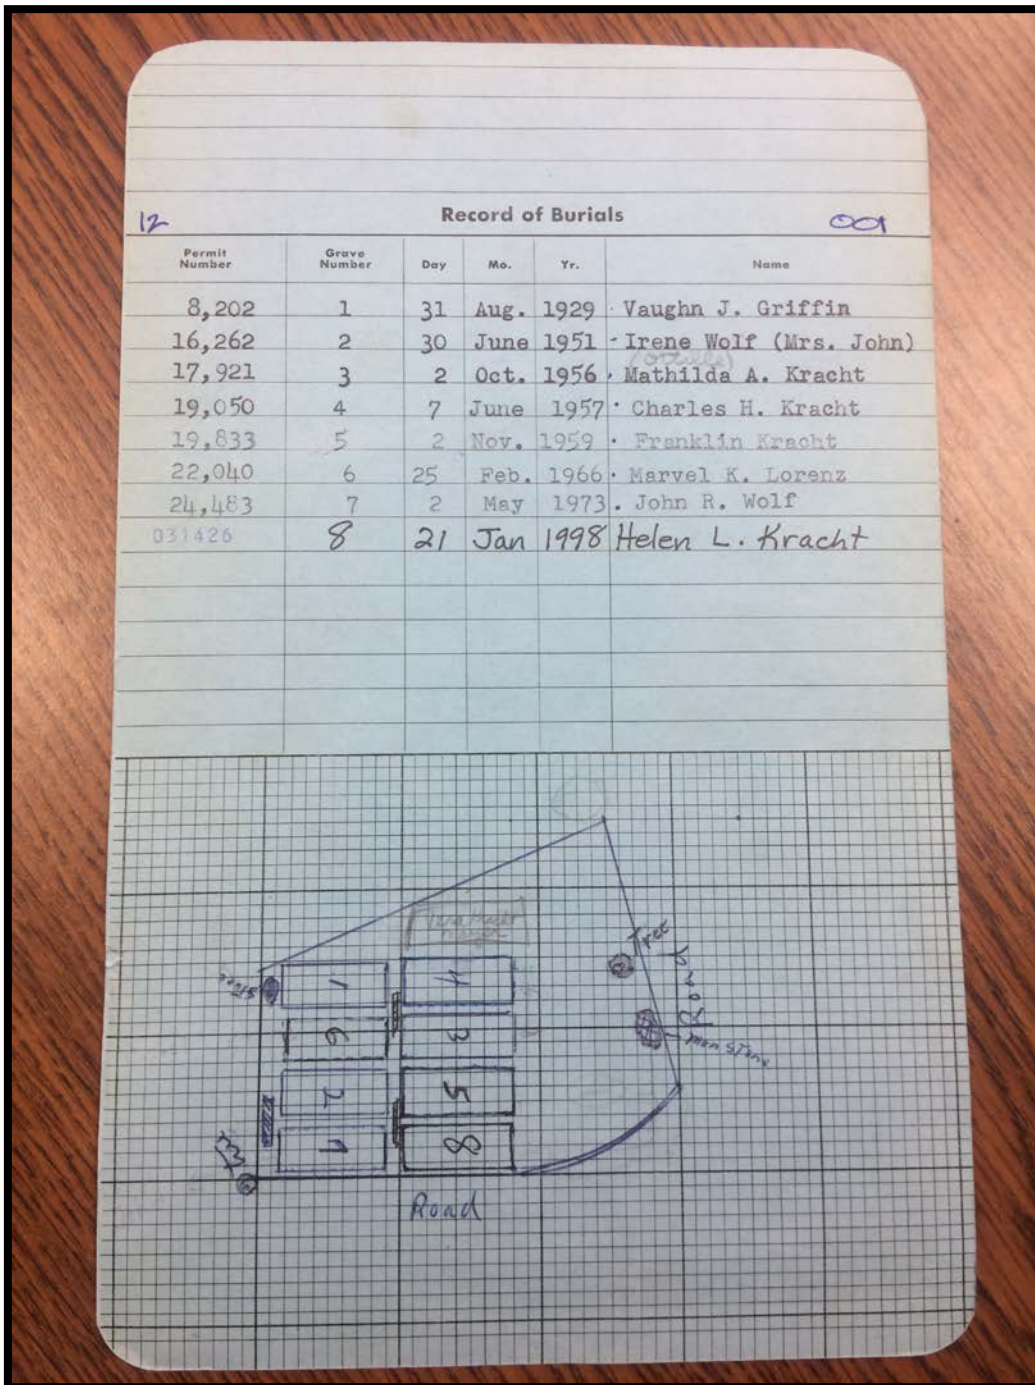 12 Record of Burials 001
Permit Number Grave Number Day Mo. Yr. Name
8,202 1 31 Aug. 1929 · Vaughn J. Griffin
16,262 2 30 June 1951 - Irene Wolf (Mrs. John)
17,921 3 2 Oct. 1956 · Mathilda A. Kracht
19,050 4 7 June 1957 · Charles H. Kracht
19,833 5 2 Nov. 1959 · Franklin Kracht
22,040 6 25 Feb. 1966 · Marvel K. Lorenz
24,483 7 2 May 1973 . John R. Wolf
031426 8 21 Jan 1998 Helen L. Kracht
tree
Road
1 4
6 3
2 5
7 8
Road